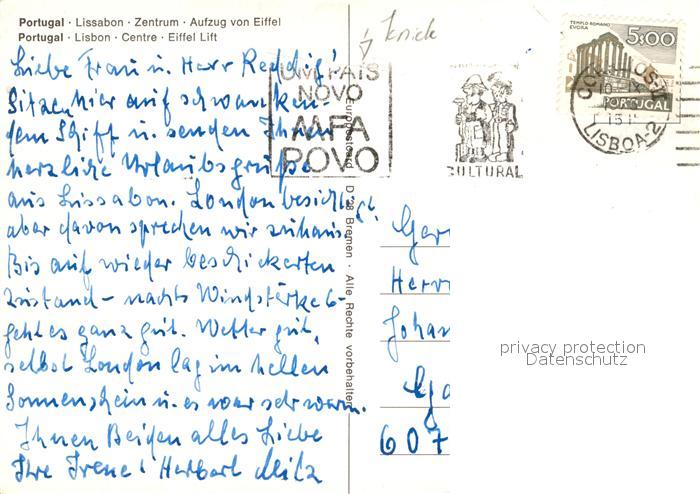 Portugal · Lissabon · Zentrum · Aufzug von Eiffel
Portugal · Lisbon · Centre · Eiffel Lift
Liebe Frau u. Herr Reddig!
Sitzen hier auf schwanken-
dem Schiff u. senden Ihnen
herzliche Urlaubsgrüße
aus Lissabon. London besichtigt
aber davon sprechen wir zuhaus.
Bis auf wieder
Zustand - nachts Windstärke 6 -
geht es ganz gut. Wetter gut,
selbst London lag im hellen
Sonnenschein u. es war sehr warm.
Ihnen Beiden alles Liebe
Ihre Irene u. Herbert
Knick
UM PAÍS
NOVO
MFA
POVO
CULTURAL
TEMPLO ROMANO
EVORA
5$00
PORTUGAL
LISBOA-2
D 28 Bremen · Alle Rechte vorbehalten
Herr
Johan
607
privacy protection
Datenschutz